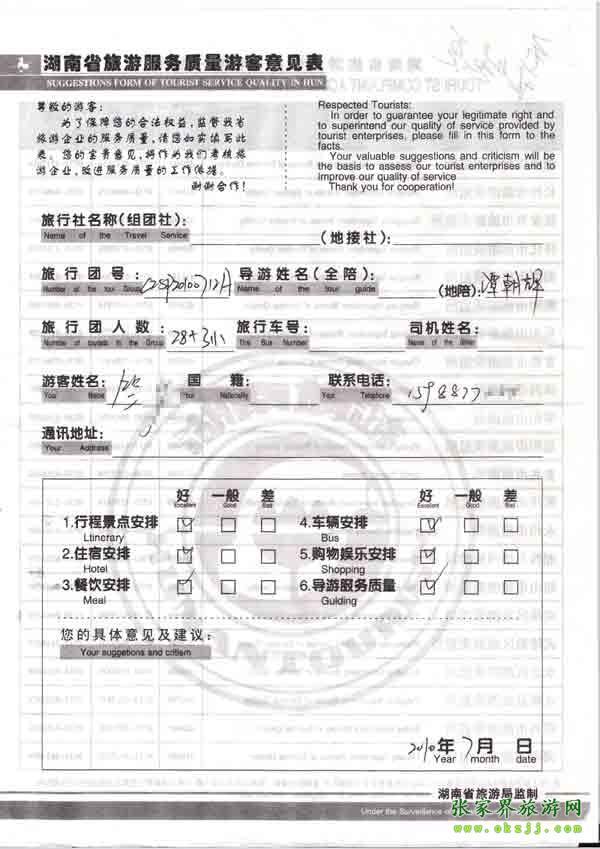 湖南省旅游服务质量游客意见表
SUGGESTIONS FORM OF TOURIST SERVICE QUALITY IN HUN
尊敬的游客:
为了保障您的合法权益,监督我省
旅游企业的服务质量,请您如实填写此
表。您的宝贵意见,将作为我们考核旅
游企业,改进服务质量的工作依据。
谢谢合作!
Respected Tourists:
In order to guarantee your legitimate right and
to superintend our quality of service provided by
tourist enterprises, please fill in this form to the
facts.
Your valuable suggestions and criticism will be
the basis to assess our tourist enterprises and to
improve our quality of service
Thank you for cooperation!
旅行社名称(组团社): (地接社):
Name of the Travel Service
旅行团号: 导游姓名(全陪): (地陪): 谭朝辉
Number of the tour Group Name of the tour guide
旅行团人数: 28+3小 旅行车号: 司机姓名:
Number of tourists In the Group The Bus Number Name of the driver
游客姓名: 国籍: 联系电话: 1598877
Your Name Your Nationality Your Telephone
通讯地址:
Your Address
好 一般 差 好 一般 差
Excellent Good Bad Excellent Good Bad
1.行程景点安排 4.车辆安排
Ltinerary Bus
2.住宿安排 5.购物娱乐安排
Hotel Shopping
3.餐饮安排 6.导游服务质量
Meal Guiding
您的具体意见及建议:
Your suggetions and critism
2010年7月 日
Year month date
湖南省旅游局监制
Under the Surveillance of
张家界旅游网
www.okzjj.com